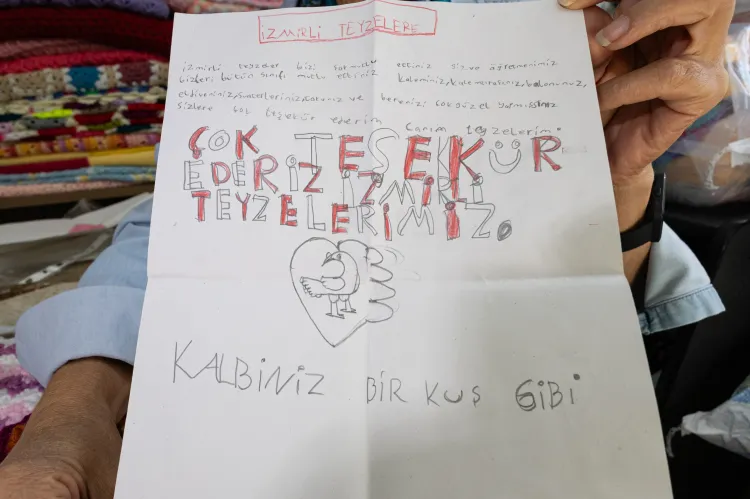 İZMİRLİ TEYZELERE
izmirli teyzeler bizi çok mutlu ettiniz siz ve öğretmenimiz
bizleri bütün sınıfı mutlu ettiniz kaleminiz, balonunuz,
eldiveniniz, ve bereniz çok güzel
sizlere çok teşekür ederim canım teyzelerim.
ÇOK TEŞEKKÜR
EDERİZ İZMİRLİ
TEYZELERİMİZ.
KALBİNİZ BİR KUŞ GİBİ